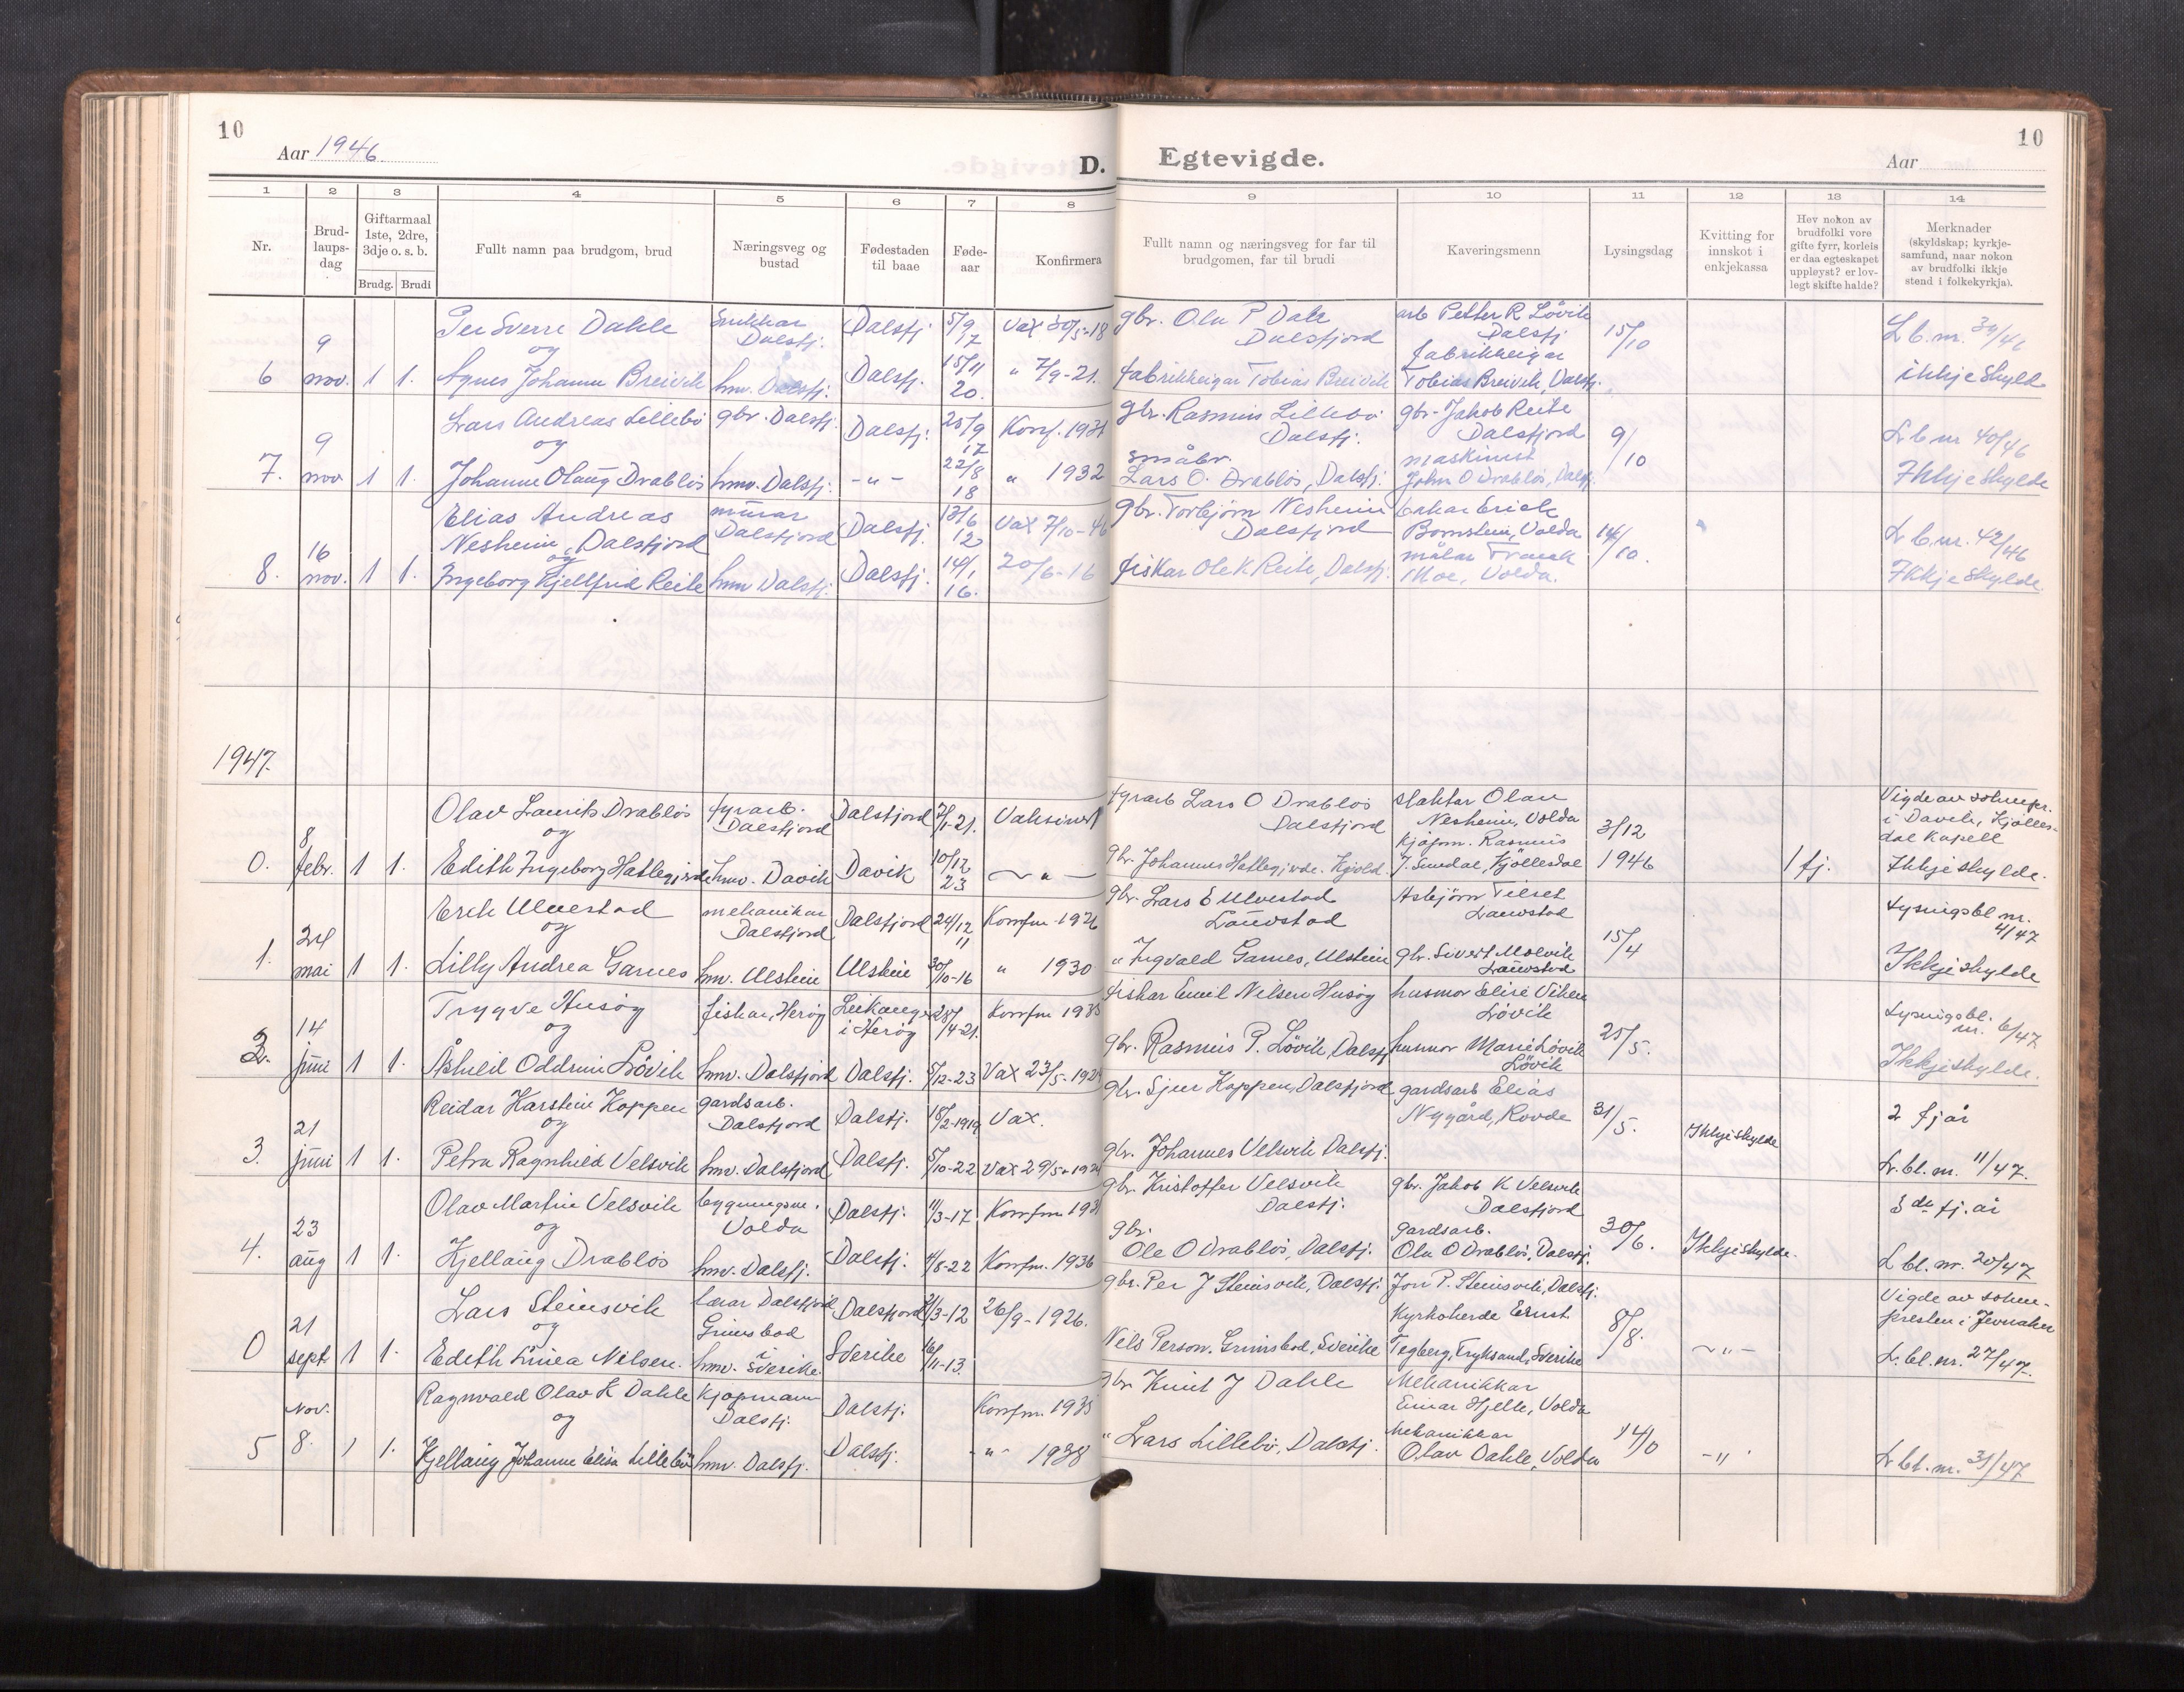 10
Aar 1946
D.
1
2
3
4
5
6
7
8
Nr.
Brud-
laups-
dag
Giftarmaal
1ste, 2dre,
3dje o. s. b.
Brudg.
Brudi
Fullt namn paa brudgom, brud
Næringsveg og
bustad
Fødestaden
til baae
Føde-
aar
Konfirmera
6
9
nov.
1
1.
Per Sverre Dahle
og
Agnes Johanne Breivik
Snikkar
Dalsfj.
hmv. Dalsfj.
Dalsfj
Dalsfj.
5/9
7
15/11
20.
Vax 30/5-18
" 7/9-21.
7.
9
nov
1
1.
Lars Andreas Lillebö
og
Johanne Olaug Drabløs
gbr. Dalsfj.
hmv. Dalsfj.
Dalsfj.
-"-
25/9
17
22/8
18
Konf. 1931
" 1932
8.
16
nov.
1
1.
Elias Andreas
Nesheim, Dalsfjord
og
Ingeborg Kjellfrid Reite
murar
Dalsfjord
hmv Dalsfj.
Dalsfj.
Dalsfj.
13/6
12
14/1
16.
Vax 7/10-46
20/6-16
1947.
0.
8
febr.
1
1.
Olav Laurits Drabløs
og
Edith Ingeborg Hatlegjerde
fyrarb.
Dalsfjord
hmv. Davik
Dalsfjord
Davik
7/1-21.
10/12
23
Vaksinert
-"-
1.
24
mai
1
1.
Erik Ulvestad
og
Lilly Andrea Garnes
mekanikar
Dalsfjord
hmv. Ulstein
Dalsfjord
Ulstein
24/12
11
30/10-16
Konfm 1926
" 1930
2.
14
juni
1
1.
Trygve Husöy
og
Åshild Oddrun Lövik
fiskar, Heröy
hmv. Dalsfjord
Leikanger
i Heröy
Dalsfj.
28/4-21.
5/12-23
Konfm 1935
Vax 23/5-192
3.
21
juni
1
1.
Reidar Karstein Koppen
og
Petra Ragnhild Velsvik
gardsarb.
Dalsfjord
hmv. Dalsfjord
Dalsfj.
Dalsfj.
18/2-1919
5/10-22
Vax.
Vax 29/5-192
4.
23
aug
1
1.
Olav Martin Velsvik
og
Kjellaug Drabløs
bygningsm.
Volda
hmv. Dalsfj.
Dalsfj.
Dalsfj.
11/3-17.
4/8-22
Konfm 1931
Konfm. 1936
0
21
sept
1
1.
Lars Steinsvik
og
Edith Linea Nilsen.
lærar Dalsfjord
Grimsbod
hmv. i Sverike.
Dalsfjord
Sverike
21/3-12
16/11-13.
26/9-1926.
5
Nov.
8.
1
1.
Ragnvald Olav K Dahle
og
Kjellaug Johanne Elisa Lillebö
Kjøpmann
Dalsfj.
hmv. Dalsfj.
Dalsfj.
Dalsfj.
Konfm. 1935
-"- 1938
10
Egtevigde.
Aar
9
10
11
12
13
14
Fullt namn og næringsveg for far til
brudgomen, far til brudi
Kaveringsmenn
Lysingsdag
Kvitting for
innskot i
enkjekassa
Hev nokon av
brudfolki vore
gifte fyrr, korleis
er daa egteskapet
uppløyst? er lov-
legt skifte halde?
Merknader
(skyldskap; kyrkje-
samfund, naar nokon
av brudfolki ikkje
stend i folkekyrkja).
gbr. Ola P Dale
Dalsfjord
fabrikkeigar Tobias Breivik
arb Petter R Lövik
Dalsfj
fabrikkeigar
Tobias Breivik, Dalsfj.
15/10
L b. nr. 34/46
ikkje skylde
gbr. Rasmus Lillebö
Dalsfj.
småbr.
Lars O. Drabløs, Dalsfj.
gbr. Jakob Reite
Dalsfjord
maskinist
John O Drabløs, Dalsfj.
9/10
L b nr 40/46
Ikkje skylde
gbr. Torbjörn Nesheim
Dalsfjord
fiskar Ole K Reite, Dalsfj.
bakar Erick
Bornstein, Volda
målar Franck
Moe, Volda.
14/10.
L b. nr. 42/46
Ikkje skylde
fyrarb Lars O Drabløs
Dalsfjord
gbr. Johannes Hatlegjerde. Kjold.
slaktar Olav
Nesheim, Volda
kjøpm. Rasmus
J. Smedal, Kjöllesdal
3/12
1946
1 fj.
Vigde av soknepr.
i Davik, Kjölles-
dal Kapell
Ikkje skylde.
gbr. Lars E Ulvestad
Lauvstad
" Ingvald Garnes, Ulstein
Asbjörn Tilset
Lauvstad
gbr. Sivert Molvik
Lauvstad
15/4
Lysingsbl nr.
4/47
Ikkje skylde
fiskar Emil Nilsen Husøy
gbr. Rasmus P. Lövik, Dalsfj
husmor Elise Viken
Lövik
husmor Marie Lövik
Lövik
25/5.
Lysingsbl.
nr. 6/47
Ikkje skylde.
gbr. Sjur Koppen, Dalsfjord
gbr. Johannes Velsvik Dalsfj.
gardsarb Elias
Nygård, Rovde
31/5.
Ikkje skylde
2 fj år
L. bl. nr. 11/47.
gbr. Kristoffer Velsvik
Dalsfj.
gbr.
Ole O Drabløs, Dalsfj.
gbr. Jakob K Velsvik
Dalsfjord
gardsarb.
Ola O Drabløs, Dalsfj.
30/6.
Ikkje skylde.
3de fj. år
L bl. nr. 20/47
gbr. Per J Steinsvik, Dalsfj.
Nels Person. Grimsbod, Sverike
Jon P. Steinsvik, Dalsfj.
Kyrkoherde Ernst
Tegberg, Fryksand, Sverike
8/8.
-"-
Vigde av sokne-
presten i Jevnaker
L. bl. nr. 27/47.
gbr Knut J Dahle
" Lars Lillebö, Dalsfj.
Mekanikkar
Einar Hjelle, Volda
Mekanikkar
Olav Dahle, Volda
14/0
-"-
L bl. nr. 31/47